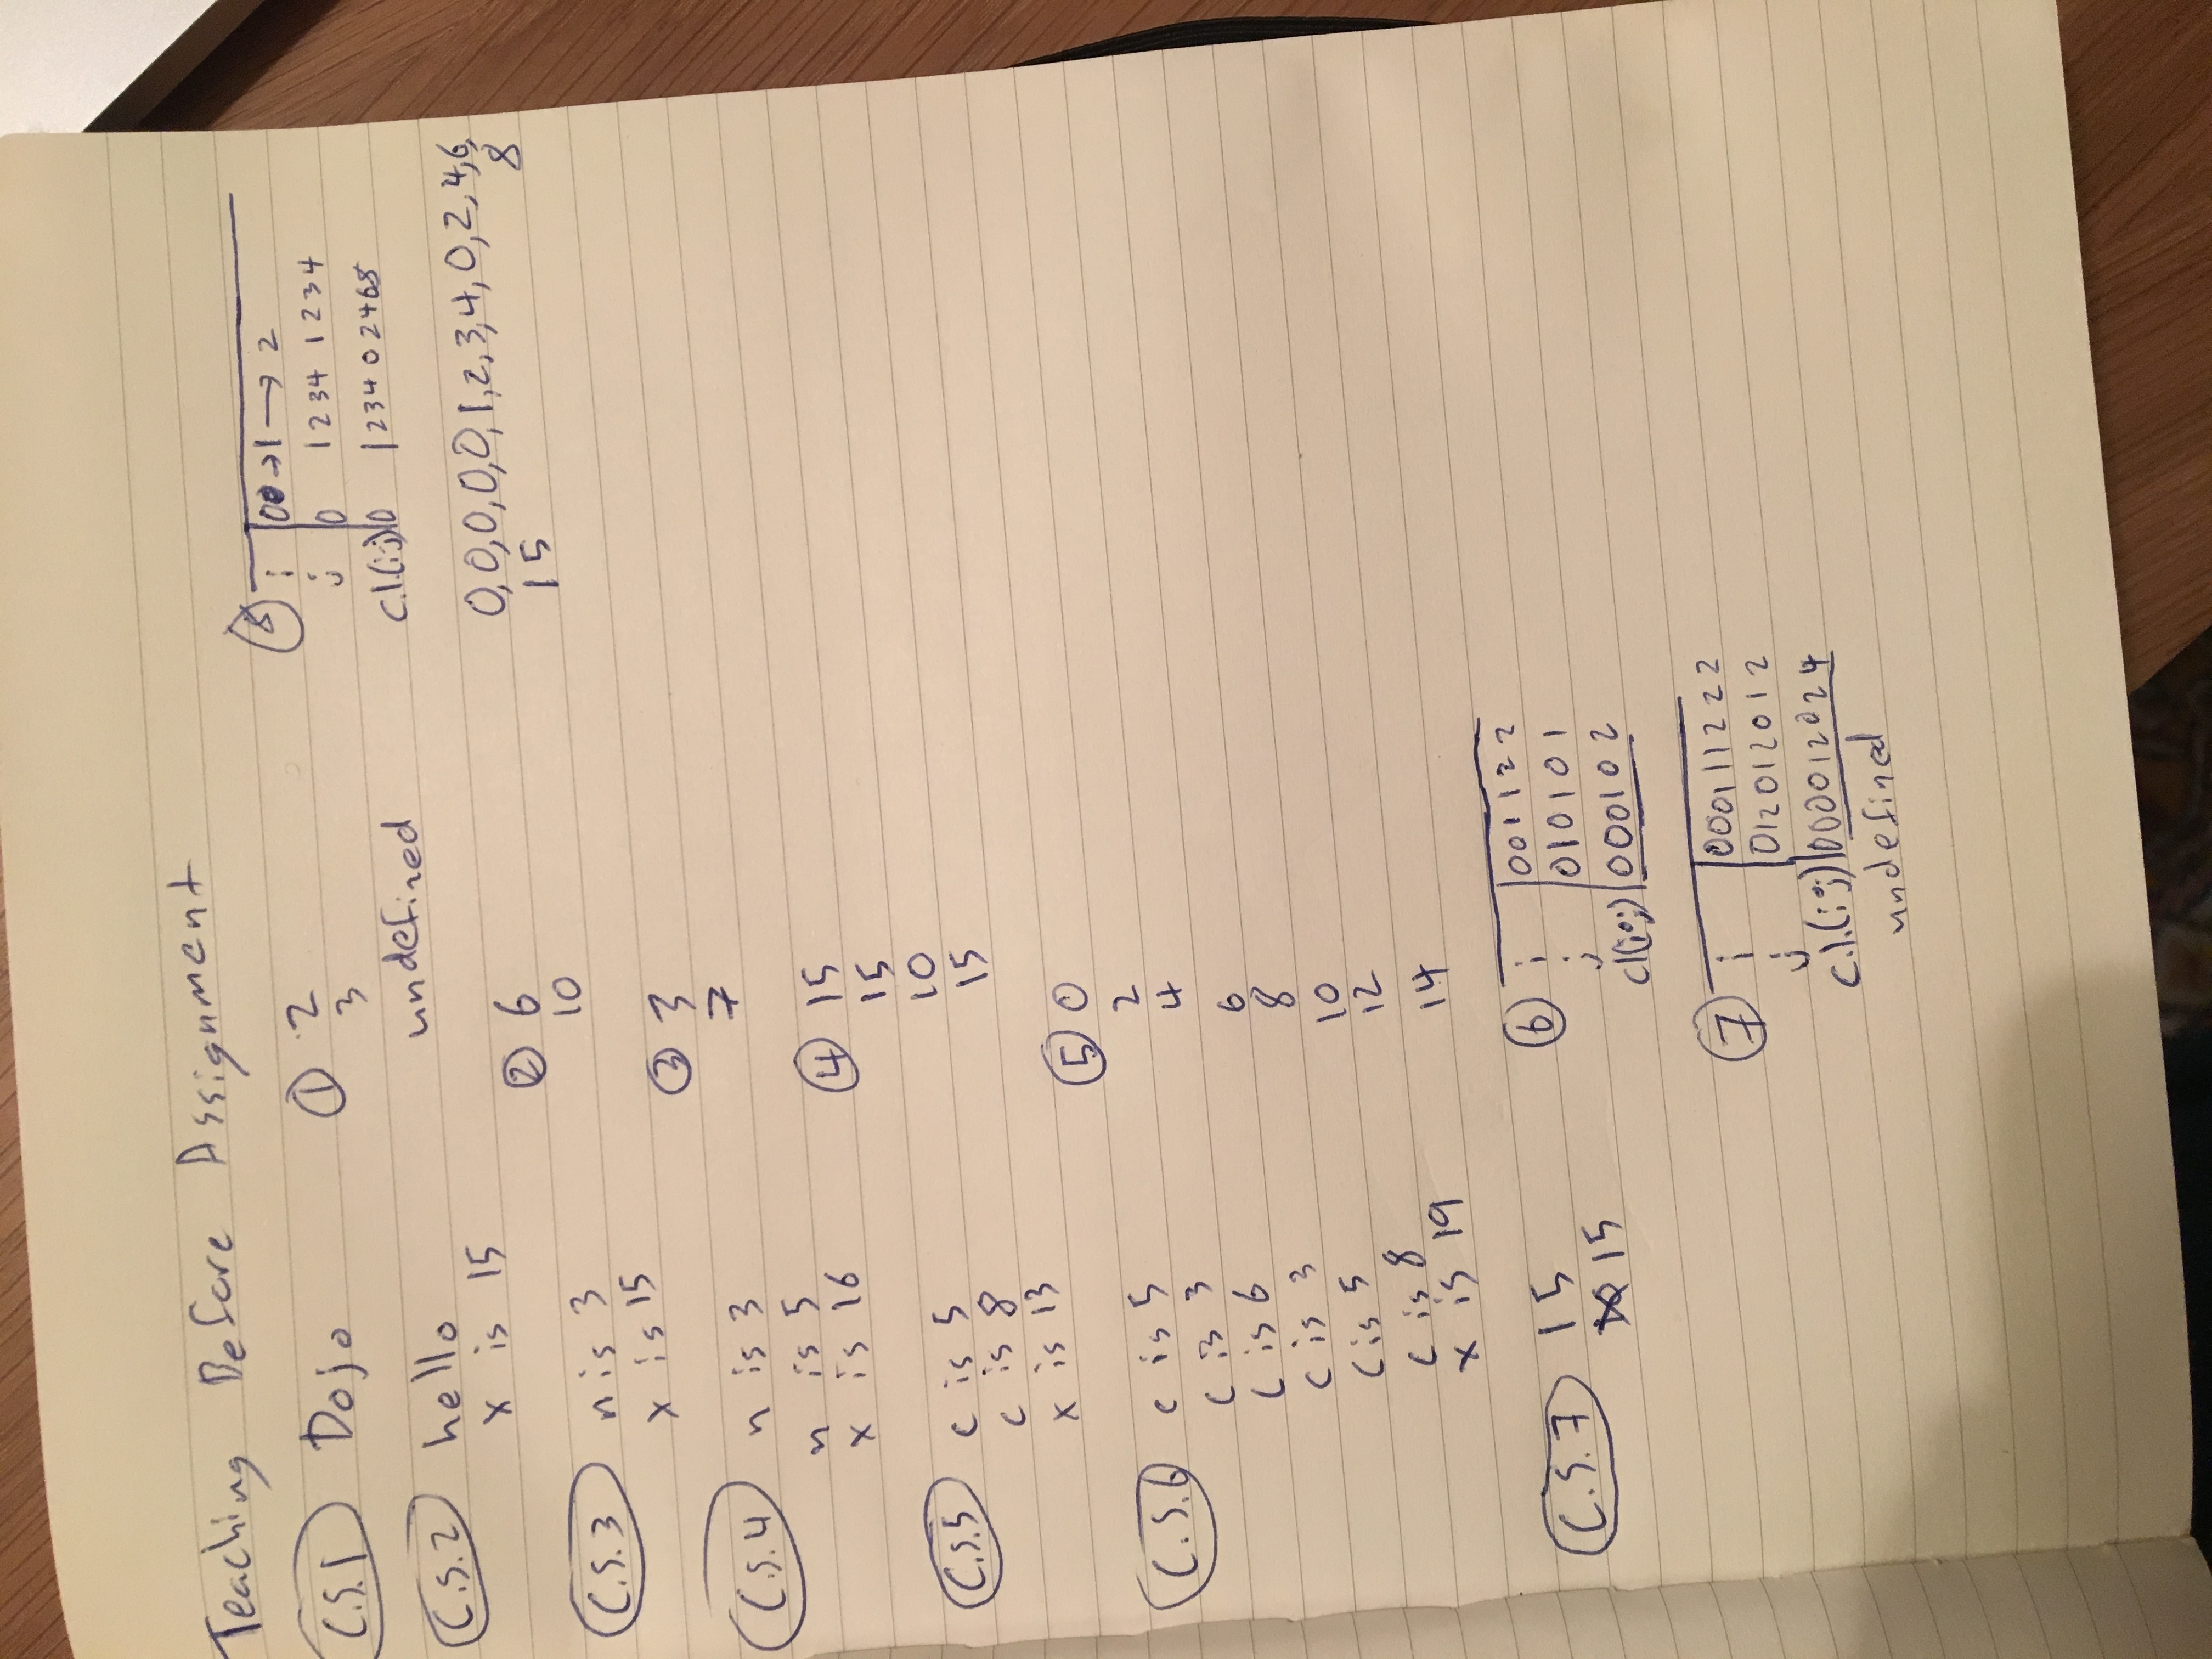 Teaching Before Assignment
C.S.1 Dojo
C.S.2 hello
x is 15
C.S.3 n is 3
x is 15
C.S.4 n is 3
n is 5
x is 16
C.S.5 c is 5
c is 8
x is 13
C.S.6 c is 5
c is 3
c is 6
c is 3
c is 5
c is 8
x is 19
C.S.7 15
15
1 2
3
undefined
2 6
10
3 3
7
4 15
15
10
15
5 0
2
4
6
8
10
12
14
6 i 001122
j 010101
cl(i*j) 000102
7 i 000111222
j 012012012
c.l.(i*j) 000012024
undefined
8 i 00→1→2
j 0 1234 1234
c.l.(i*j) 0 1234 02468
0,0,0,0,0,1,2,3,4,0,2,4,6,
8
15